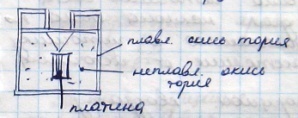 плавл. окись тория
неплавл. окись
тория
платина